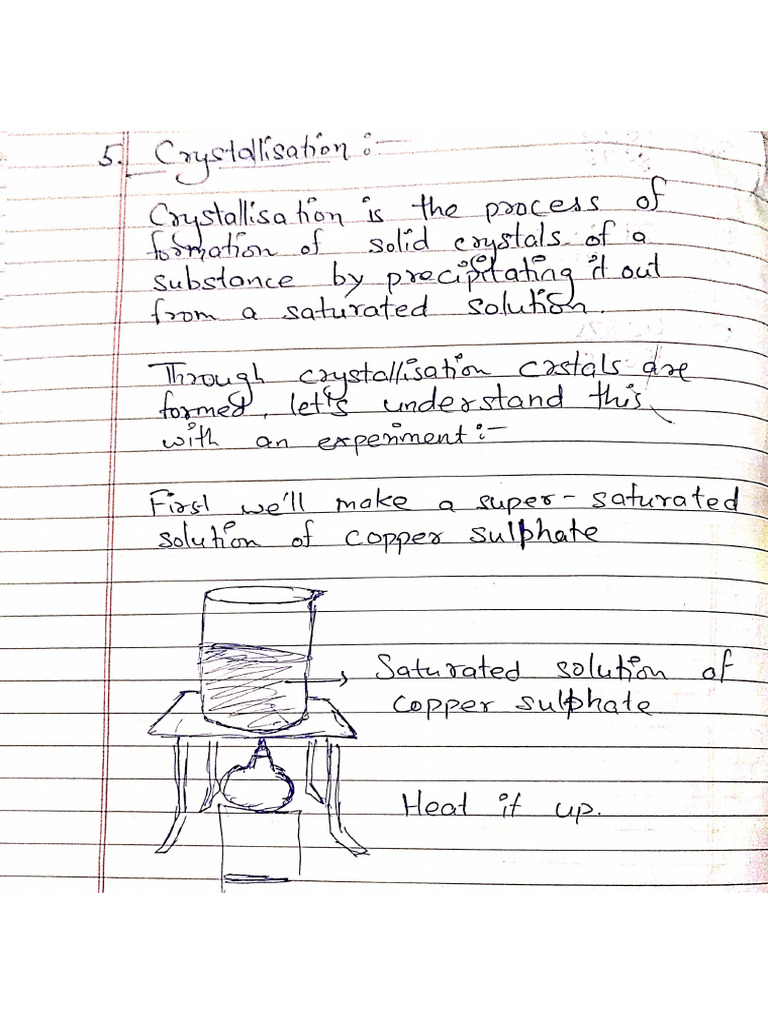 5. Crystallisation :-
Crystallisation is the process of
formation of solid crystals of a
substance by precipitating it out
from a saturated solution.
Through crystallisation crstals are
formed, let's understand this
with an experiment :-
First we'll make a super-saturated
solution of copper sulphate
Saturated solution of
copper sulphate
Heat it up.